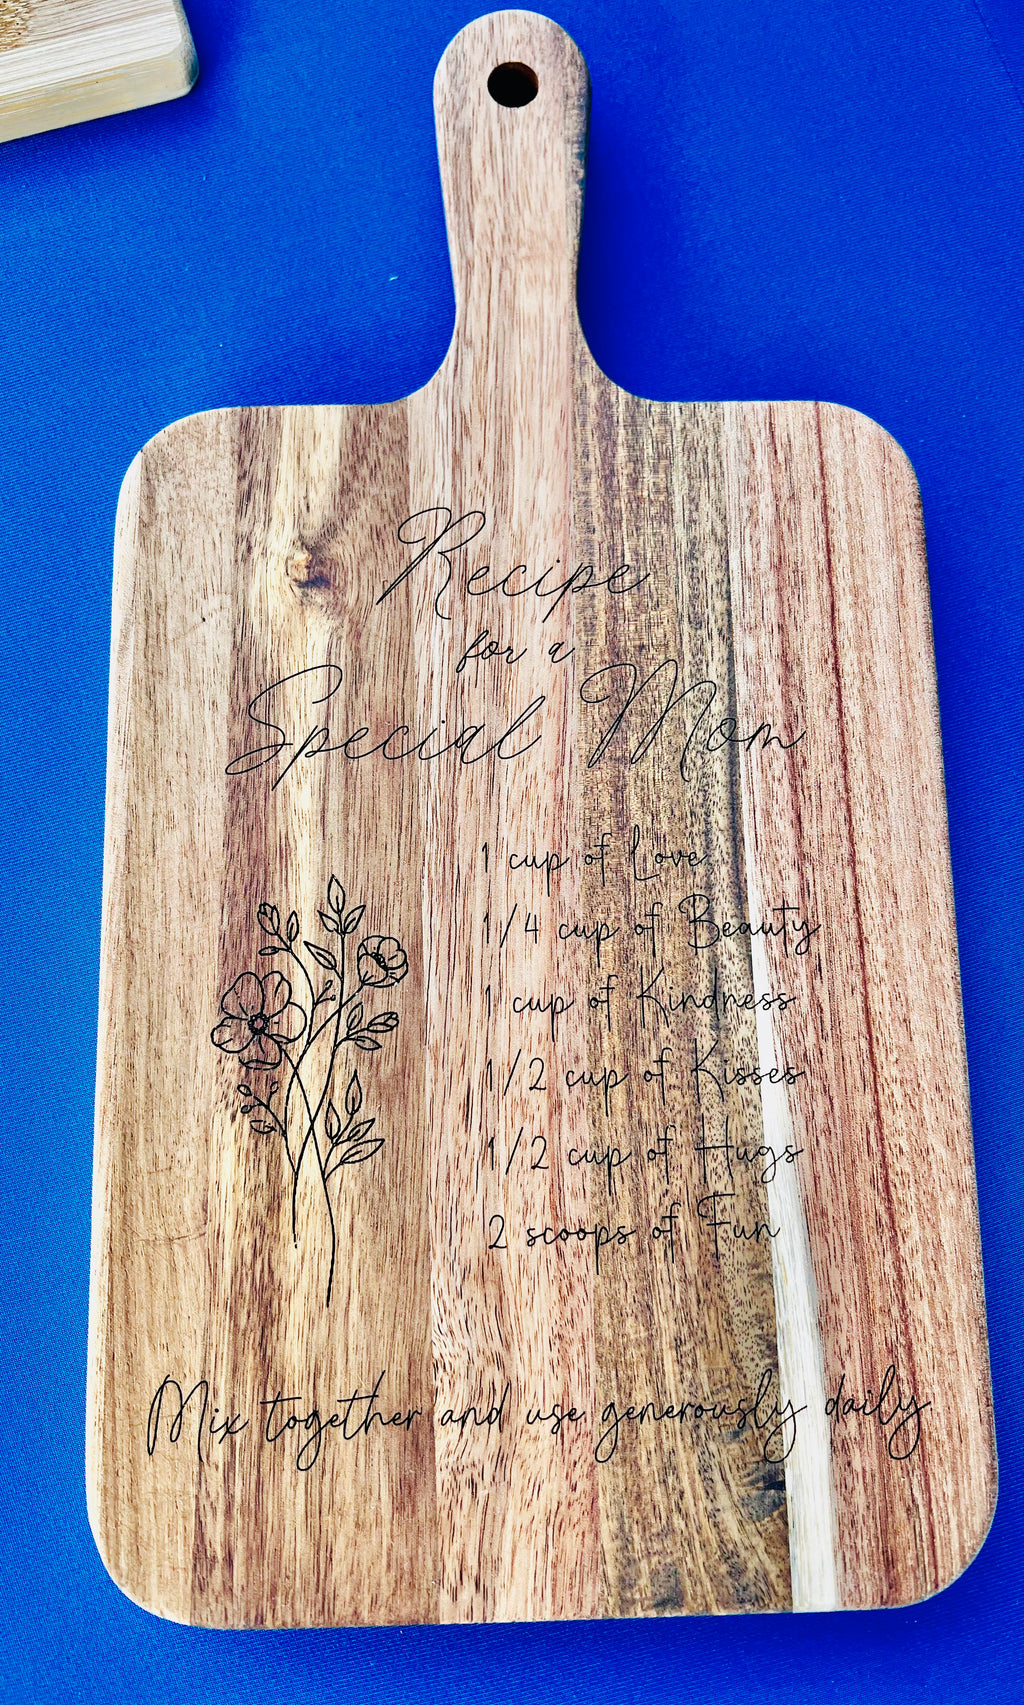 Recipe
for a
Special Mom
1 cup of Love
1/4 cup of Beauty
1 cup of Kindness
1/2 cup of Kisses
1/2 cup of Hugs
2 scoops of Fun
Mix together and use generously daily